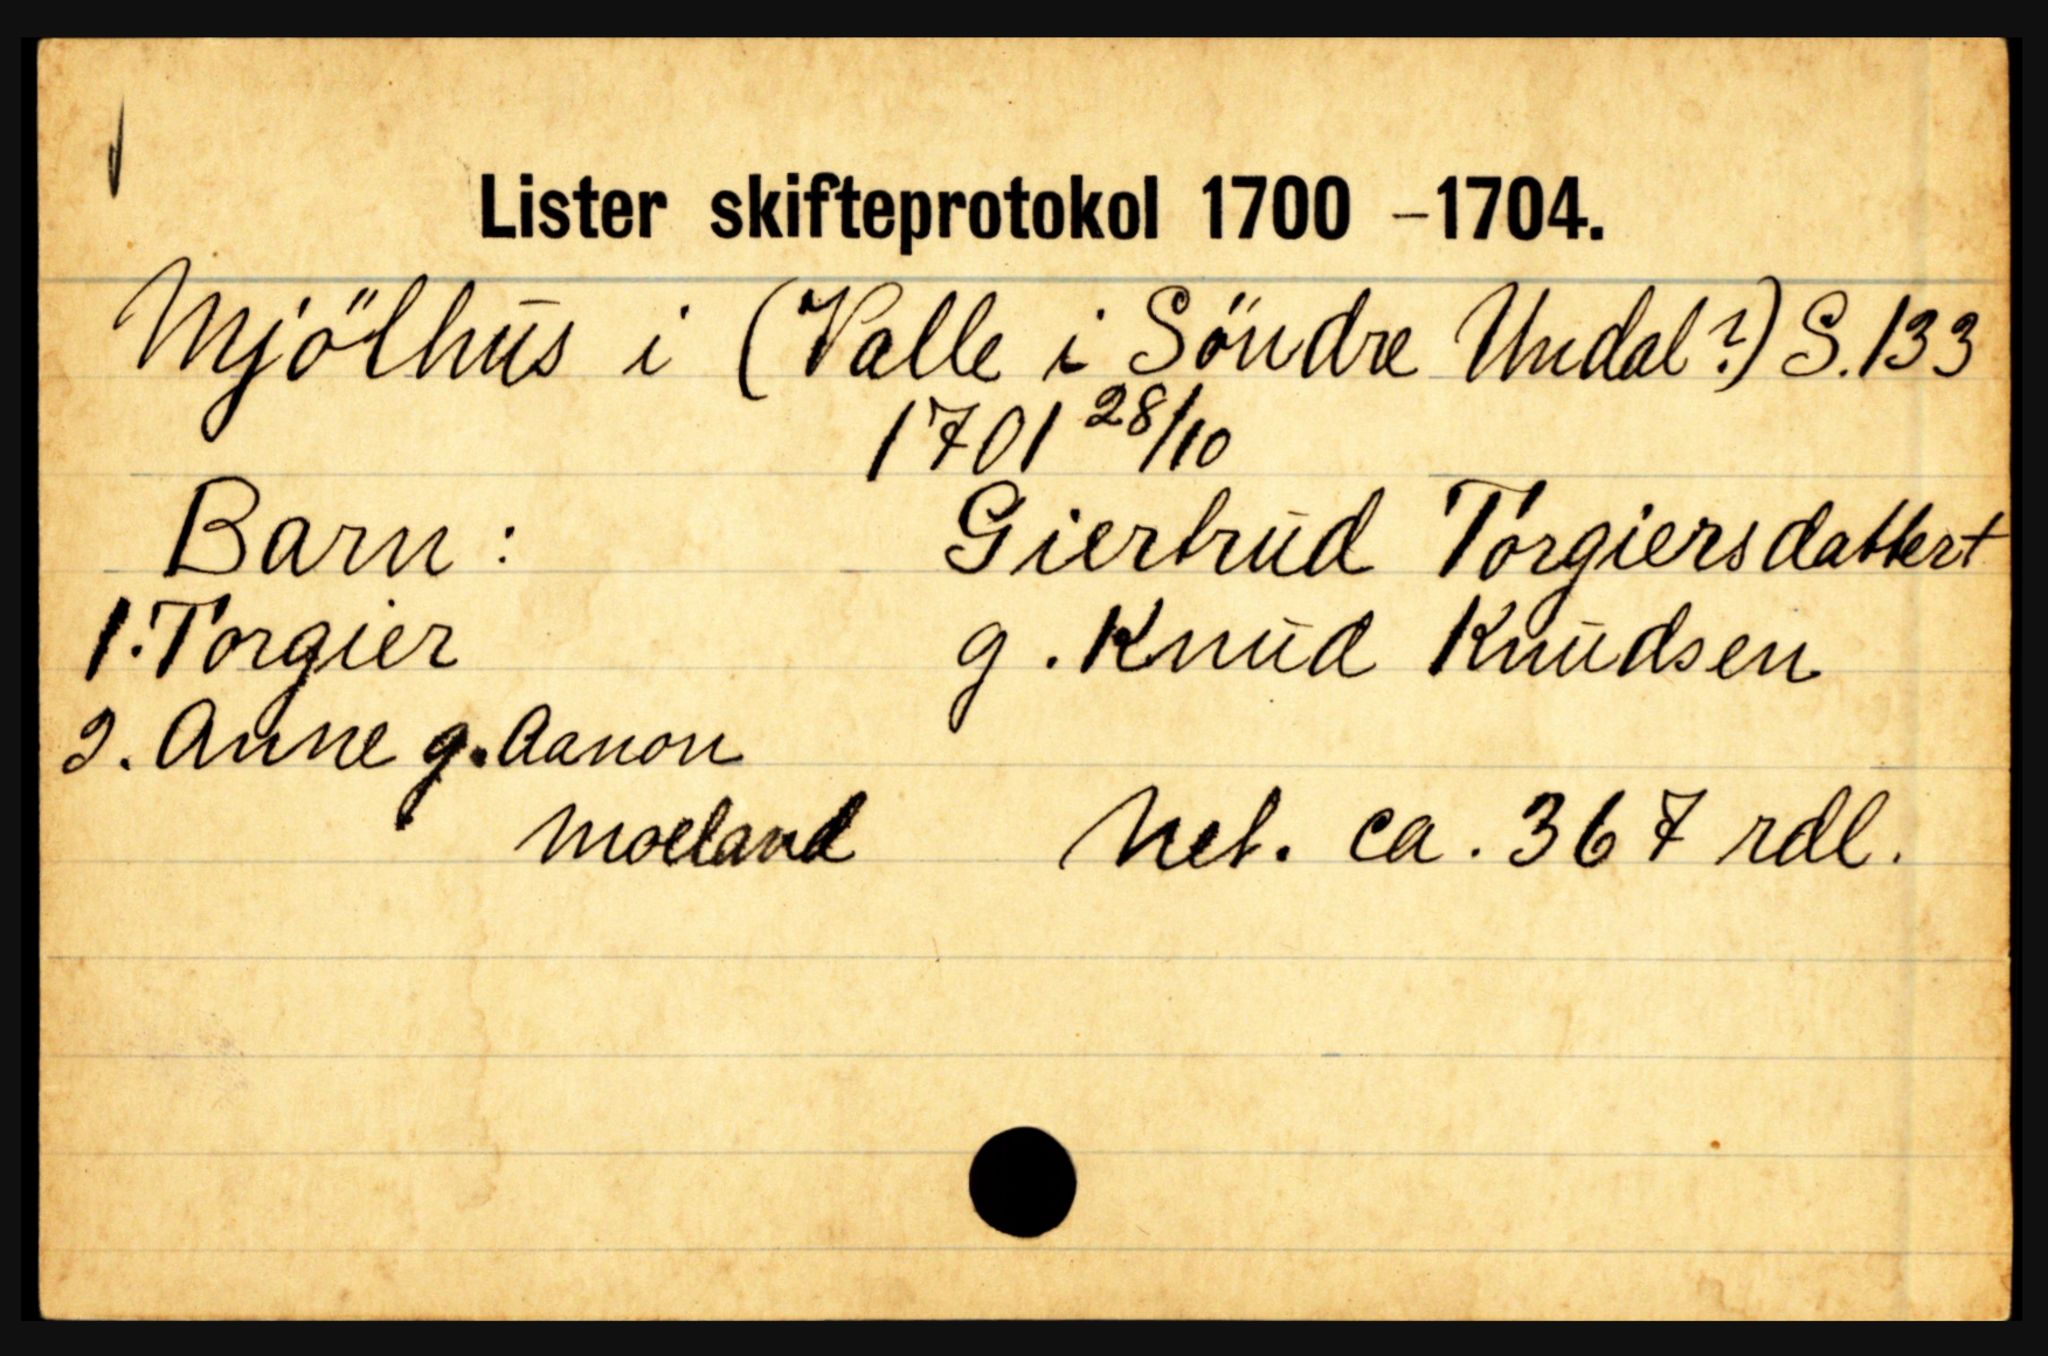 Lister skifteprotokol 1700 –1704.
Mjölhūs i (Valle i Söndre Undal?) S. 133
1701 28/10
Barn: Giertrūd Torgiersdatter†
1. Torgier g. Knūd Knūdsen
2. Anne g. Aanon
Moeland Net. ca. 367 rdl.